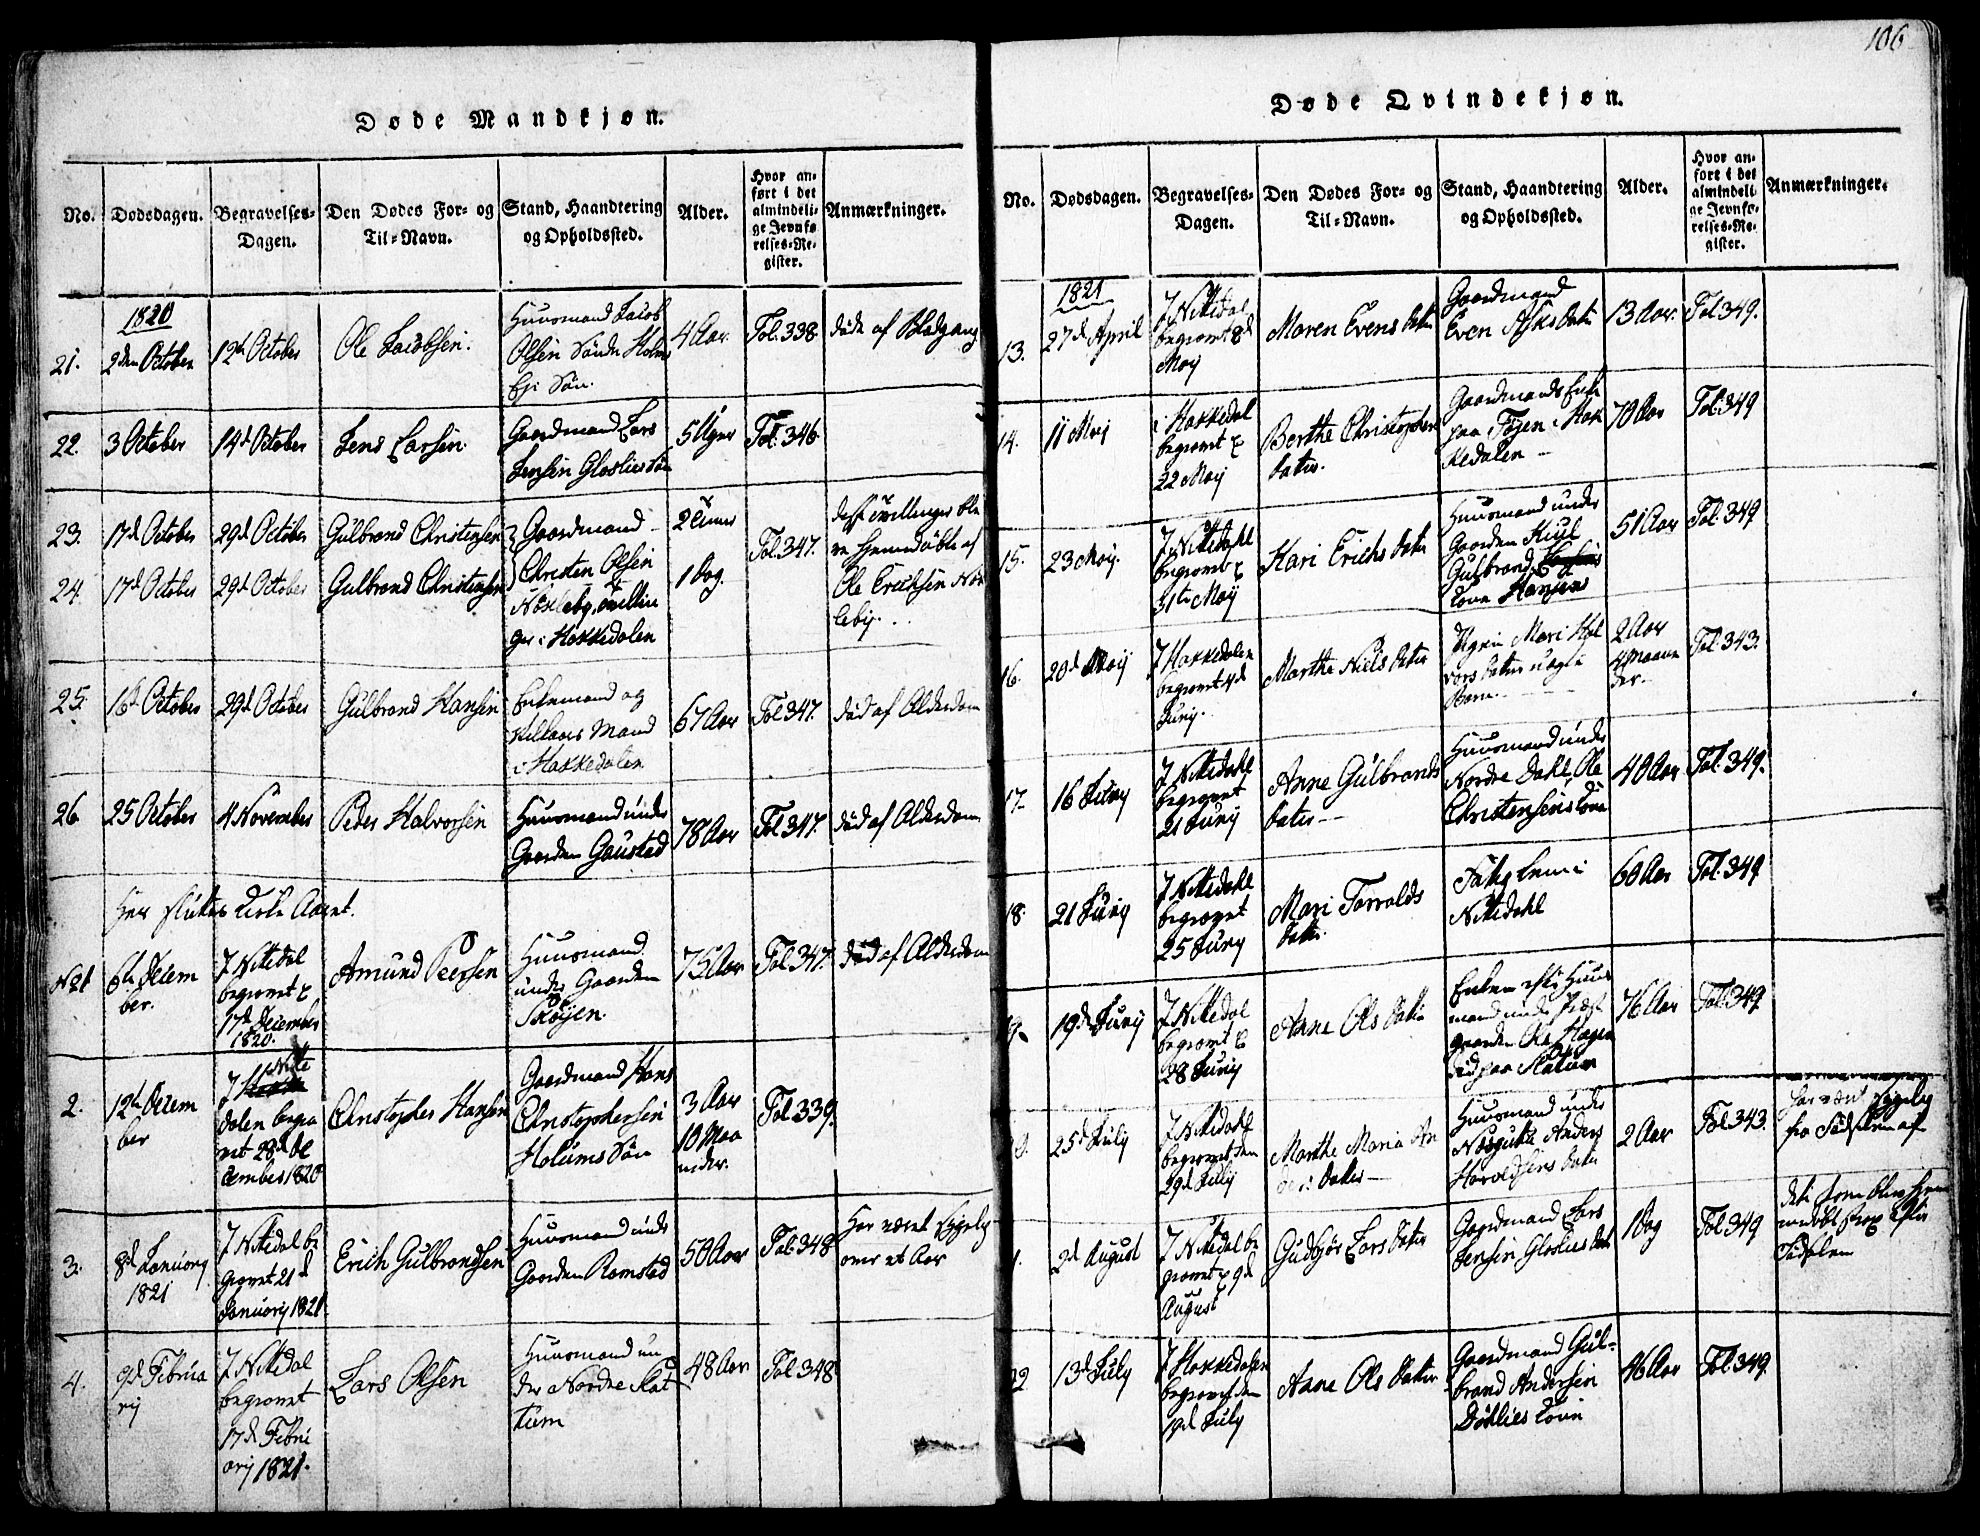 106
Døde Mandkjøn.
No.
Dødsdagen.
Begravelses-
Dagen.
Den Dødes For- og
Til-Navn.
Stand, Haandtering
og Opholdssted.
Alder.
Hvor an-
ført i det
almindeli-
ge Jevnfø-
relses-Re-
gister.
Anmærkninger.
1820
21.
2den October
12te October
Ole Jacobsen.
Huusmand Jacob
Olsen Søndre Holm
bye Søn.
4 Aar.
Fol. 338
død af Blodgang
22.
3 October
14d October
Jens Larsen.
Gaardmand Lars
Jensen Gloslies Søn
5 Uger
Fol. 346
23.
17d October
29d October
Gulbrand Christensen
Gaardmand
Christen Olsen
2 Timer
Fol. 347.
24.
17d October
29d October
Gulbrand Christensen
ger i Hakkedalen
1 Dag.
Ole Erichsen
25.
16d October
29d October
Gulbrand Hansen
Enkemand og
Mand
i Hakkedalen
67 Aar
Fol 347.
død af Alderdom
26.
25 October
4 November
Peder Halvorsen
Huusmand under
Gaarden Gaustad
78 Aar
Fol 347.
død af Alderdom
Her sluttes Kirke Aaret.
No 1
6te Decem
ber.
I Nittedal
begravet
17d December
1820.
Amund Peersen
Huusmand
under Gaarden
Skøyen.
75 Aar
Fol 347.
død af Alderdom
2.
12te Decem
ber
I Nitte
dalen begra
vet 28d De
cember 1820
Christopher Hansen
Gaardmand Hans
Christophersen
Holums Søn
3 Aar
10 Maa
neder.
Fol 339.
3.
8d Januarij
1821
I Nittedal be
gravet 21d
Januarij 1821
Erich Gulbrandsen
Huusmand under
Gaarden Ramstad
50 Aar
Fol. 348
Har været sygelig
over et Aar
4.
9d Februa
rij
I Nittedal
begravet
17d Febru
arij 1821.
Lars Olsen
Huusmand un
der Nordre Slat
tum
48 Aar
Fol 348
Døde Qvindekjøn.
No.
Dødsdagen.
Begravelses-
Dagen.
Den Dødes For- og
Til-Navn.
Stand, Haandtering
og Opholdssted.
Alder.
Hvor an-
ført i det
almindeli-
ge Jevnfø-
relses-Re-
gister.
Anmærkninger.
1821
13.
27d April
I Nittedal
begravet 8d
Maj
Maren Evens Datter
Gaardmand
Even Datter
13 Aar.
Fol 349.
14.
11 Maj
i Hakkedal
begravet
22 Maj
Berthe Christophers
Datter.
Gaardmands Enke
paa i Hak
kedalen
70 Aar
Fol. 349
15.
23 Maj.
I Nittedahl
begravet
31te Maij
Kari Erichs Datter
Huusmand under
Gaarden
Gulbrand
Kone Hansens
51 Aar
Fol. 349
16.
20d Maij
I Hakkedalen
begravet 4d
Junij.
Marthe Niels Datter
Pigen Mari Hal
vors Datters uægte
Barn
2 Aar
4 Maane
der.
Fol. 343.
17.
16 Junij
I Nittedahl
begravet
21 Junij
Anne Gulbrands
Datter
Huusmand under
Nordre Dahl, Ole
Christensens Kone
40 Aar
Fol. 349.
18.
21 Junij
I Nittedahl
begravet
25 Junij
Mari Torvalds
Datter.
Fattig Lem i
Nittedahl
60 Aar
Fol. 349
19.
19d Junij
I Nittedal
begravet
28 Junij
Anne Ols Datter
Enken efter Huus
mand under Præst
gaarden Ole
76 Aar
Fol. 349
25d Julij
I Nittedahl
begravet den
29d Julij
Marthe Maria An
ders Datter
Huusmand under
Anders
Haroldsens Datter
2 Aar
Fol 343.
har været sygelig
fra Fødselen af
2d August
I Nittedal be
gravet 9d
August
Gudbjør Lars Datter
Gaardmand Lars
Jensen Gloslies Datter
1 Dag
Fol 349
Fødselen
22
13d Julij
I Hakkedalen
begravet den
19d Julij
Anne Ols Datter
Gaardmand Gul-
brand Andersen
Døhlies Kone
46 Aar
Fol. 349.